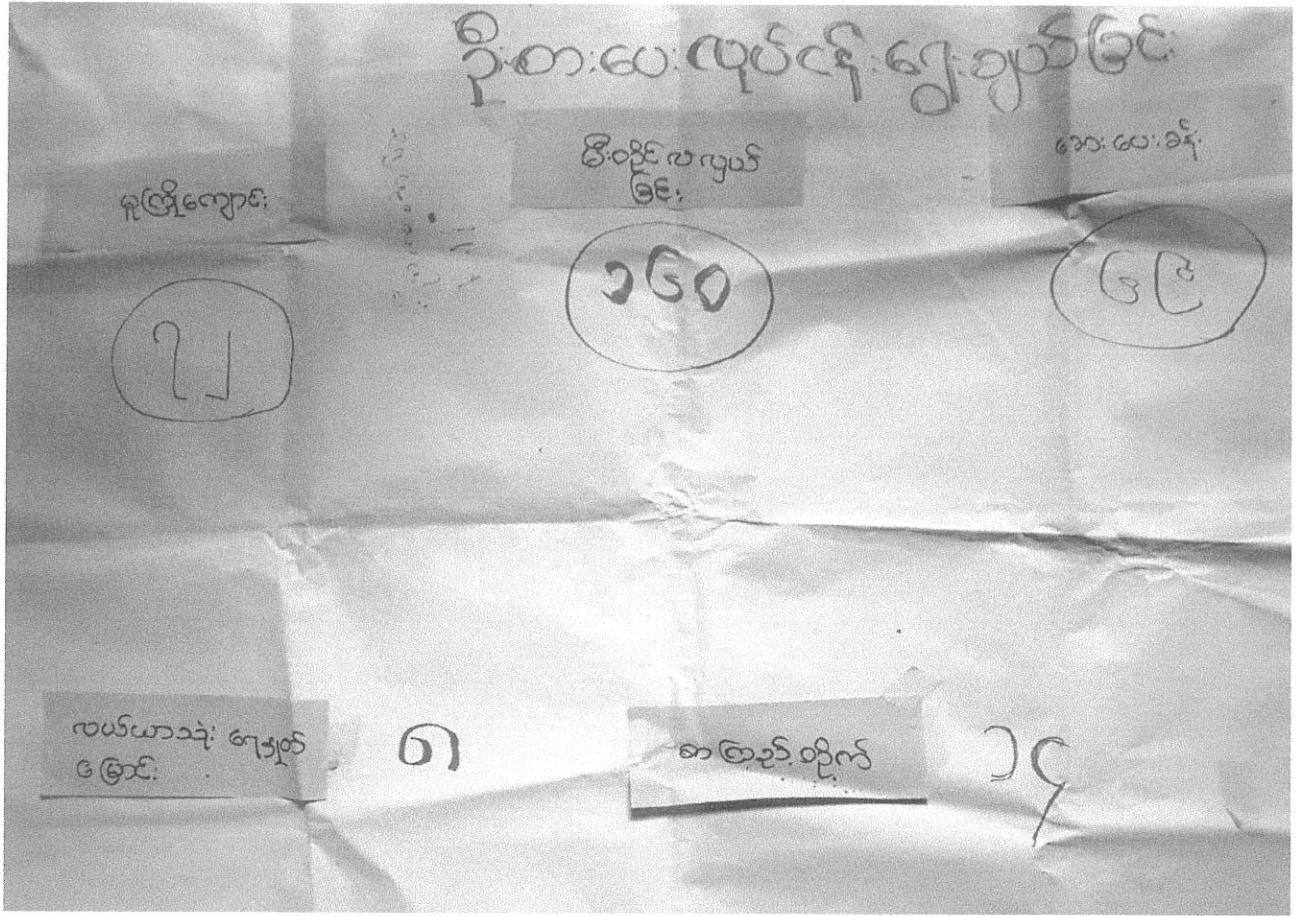 ဦးစားပေးလုပ်ငန်းရွေးချယ်ခြင်း
မူကြိုကျောင်း
မီးတိုင်လဲလှယ်
ခြင်း
ဆေးပေးခန်း
၇၂
၁၆၀
၆၉
လယ်ယာသုံး ရေနုတ်
မြောင်း
၈
စာကြည့်တိုက်
၁၄